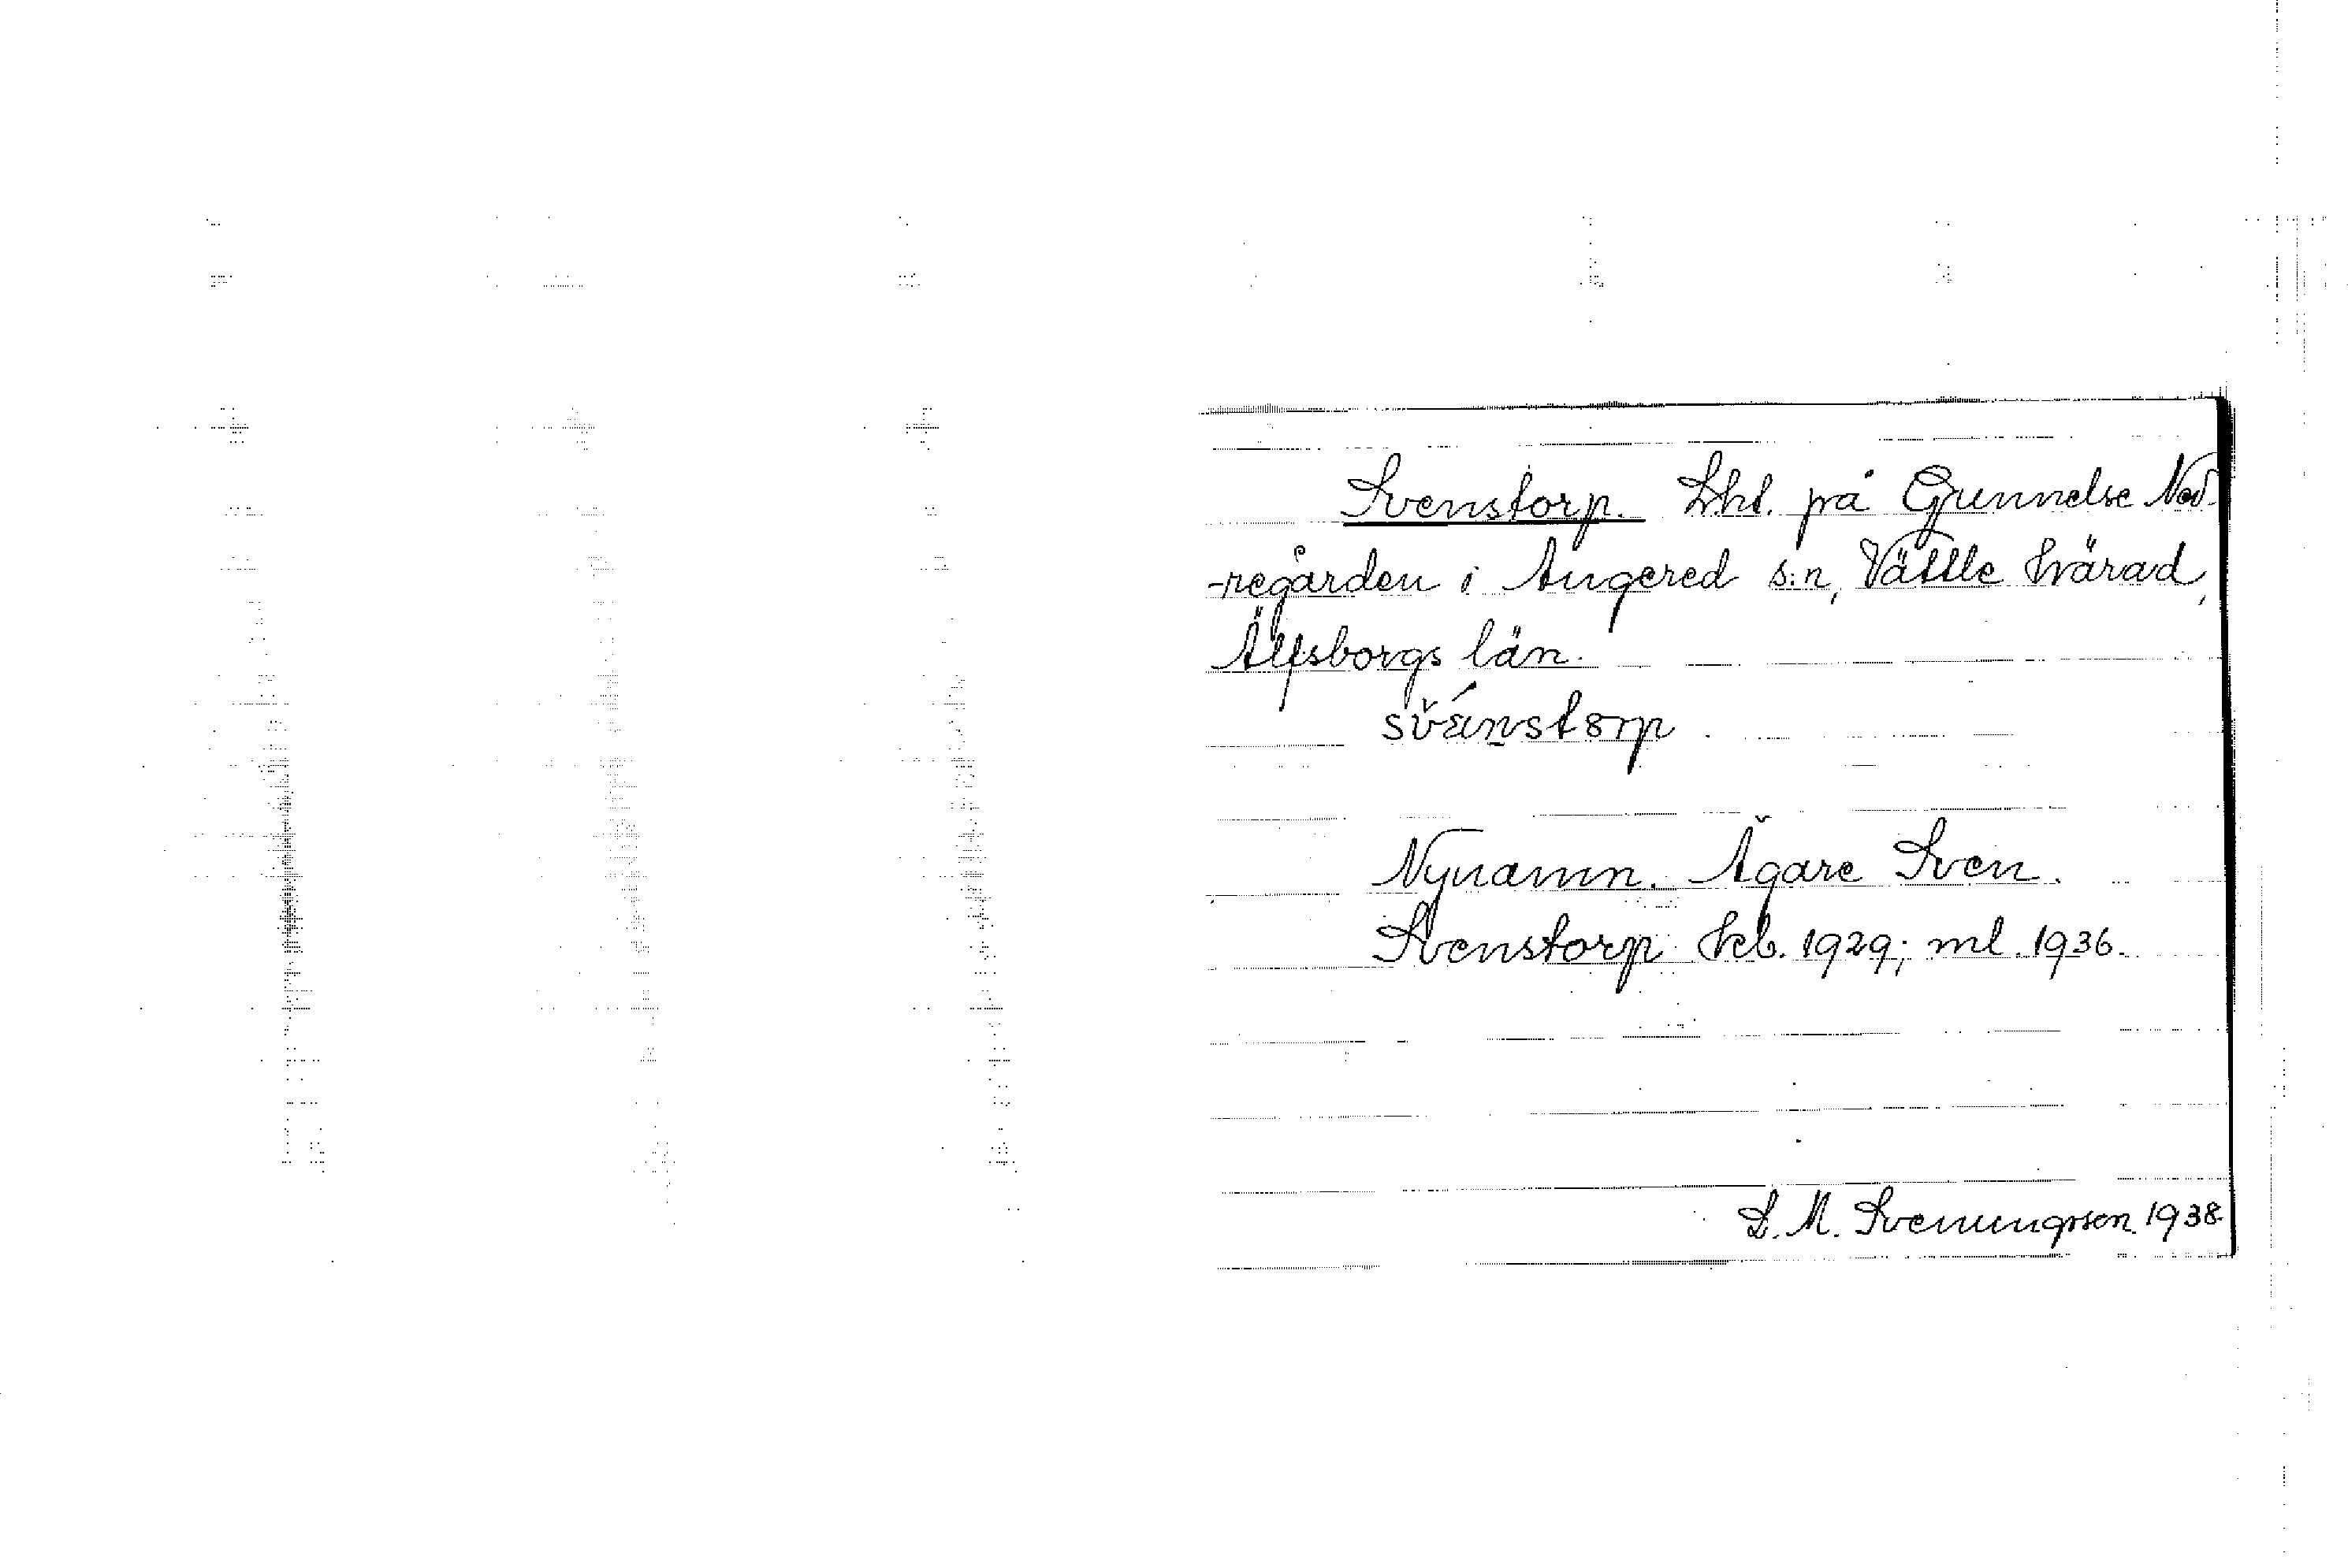 Svenstorp. Lht. på Gunnelse Ned-
-regården i Angered s:n, Vättle härad,
Älfsborgs län.
Nynamn. Ägare Sven.
Svenstorp hcb. 1929; ml. 1936.
S. M. Svenungsson. 1938.